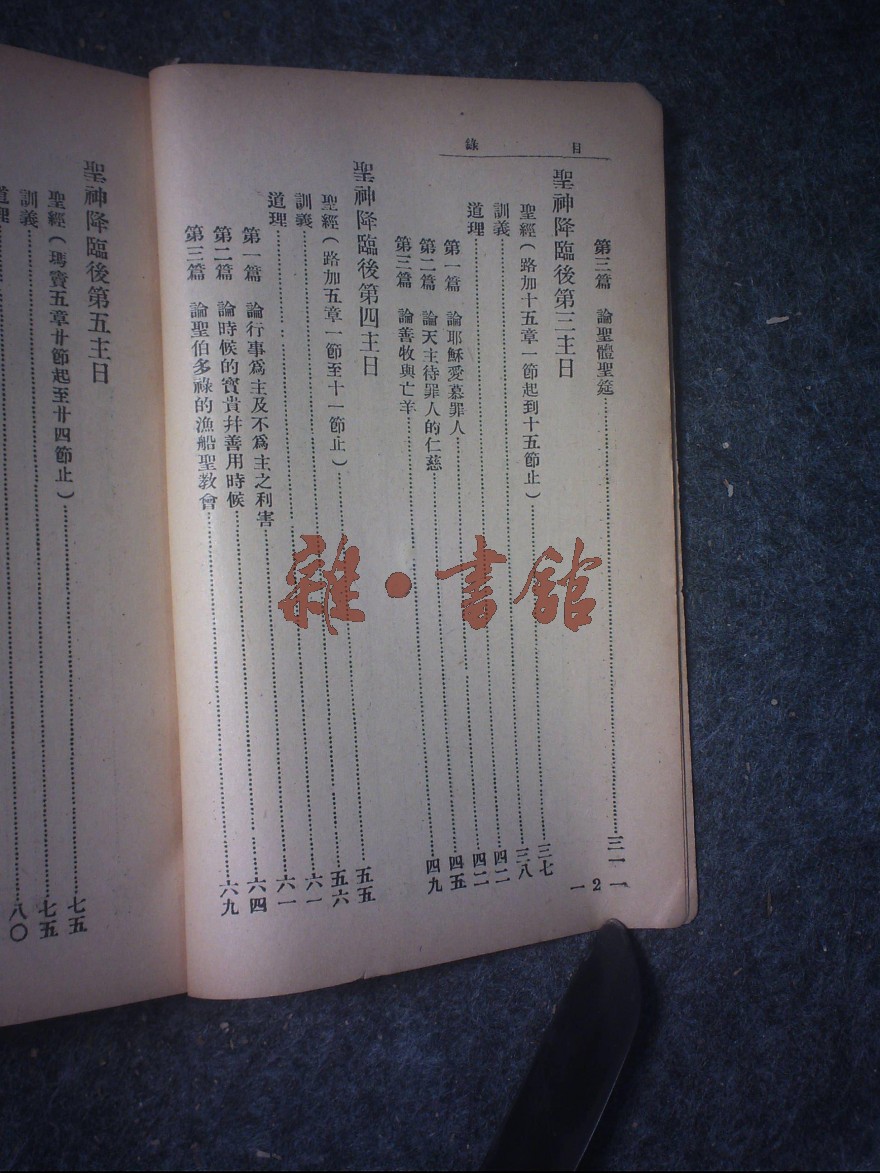 目錄
第三篇 論聖體聖筵……三一
聖神降臨後第三主日
聖經(路加十五章一節起到十五節止)……三七
訓義……三八
道理……四二
第一篇 論耶穌愛慕罪人……四二
第二篇 論天主待罪人的仁慈……四五
第三篇 論善牧與亡羊……四九
聖神降臨後第四主日
聖經(路加五章一節至十一節止)……五五
訓義……五六
道理……六一
第一篇 論行事為主及不為主之利害……六一
第二篇 論時候的寶貴幷善用時候……六四
第三篇 論聖伯多祿的漁船聖教會……六九
—2—
聖神降臨後第五主日
聖經(瑪竇五章廿節起至廿四節止)……七五
訓義……七五
道理……八〇
雜·書館